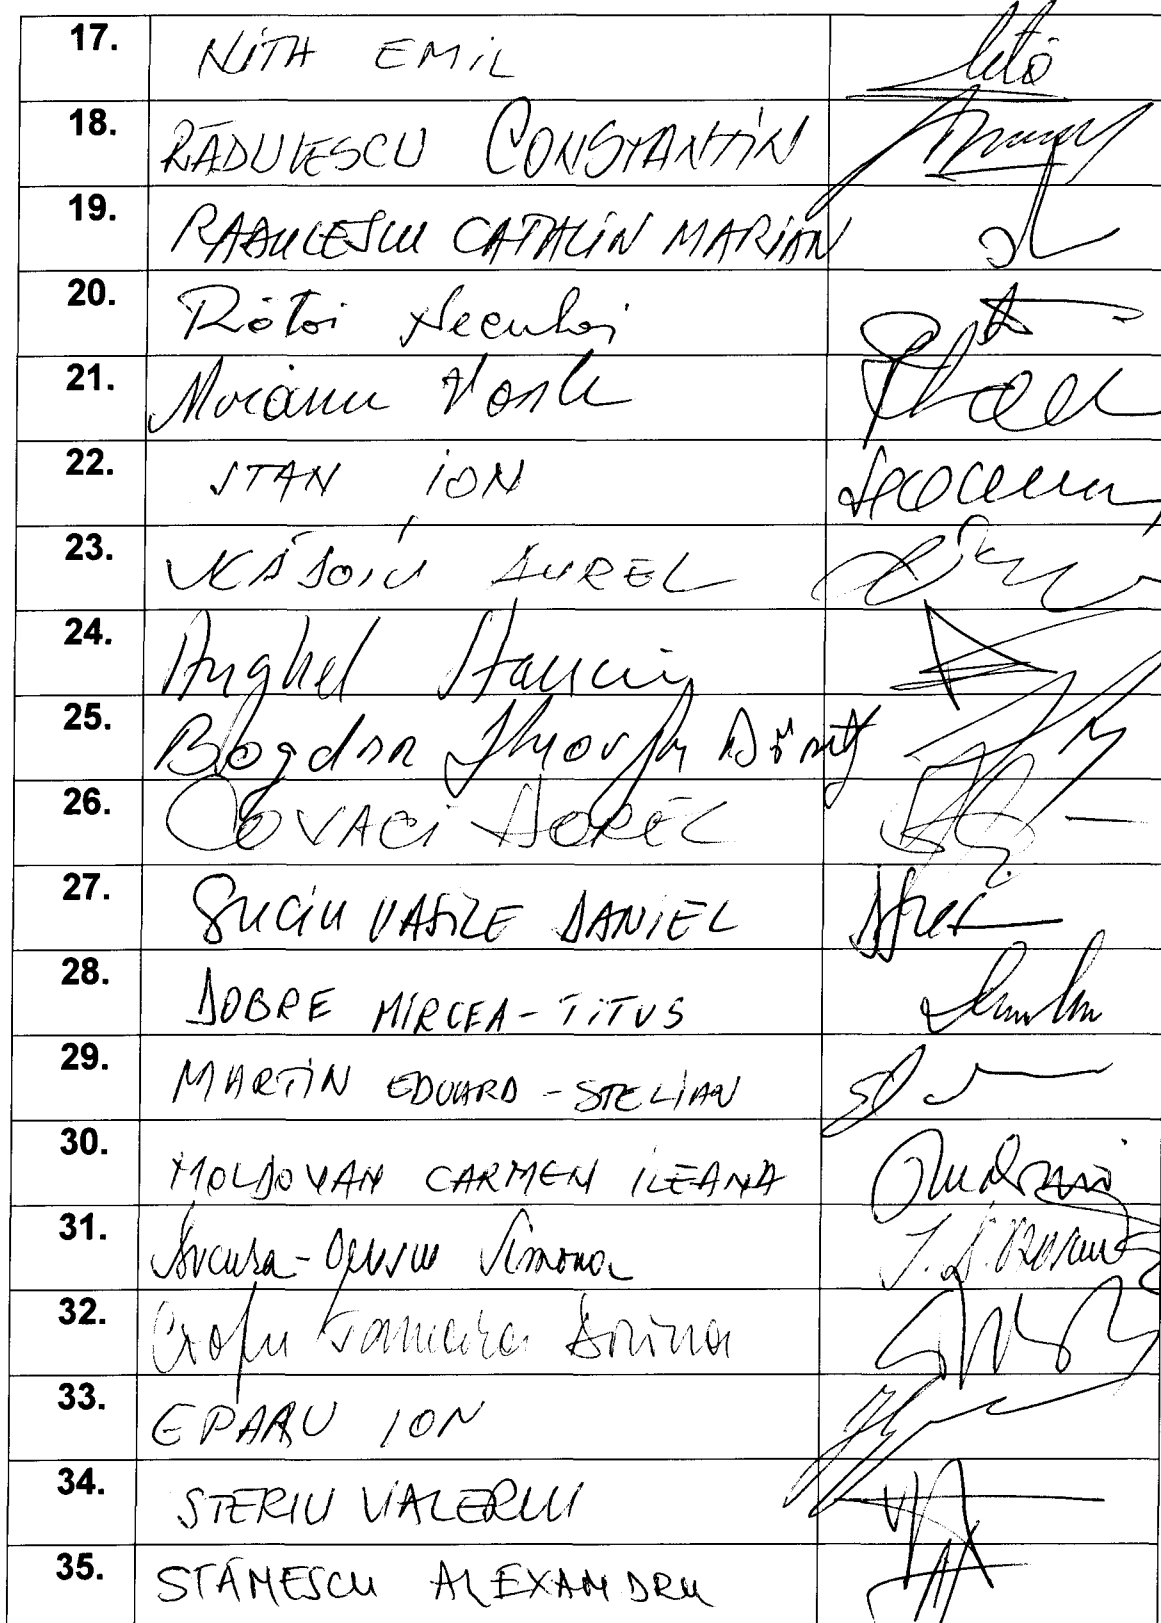 17. NIȚĂ EMIL
18. RĂDULESCU CONSTANTIN
19. RADULESCU CATALIN MARIAN
20. Răţoi Neculai
21. Mocanu Vasile
22. STAN ION
23. VLĂDOIU AUREL
24. Anghel Stanciu
25. Bogdan Gheorghe Dănuț
26. COVACI DOREL
27. SUCIU VASILE DANIEL
28. DOBRE MIRCEA-TITUS
29. MARTIN EDUARD-STELIAN
30. MOLDOVAN CARMEN ILEANA
31. Bucura-Oprescu Simona
32. Ciofu Tamara Dorina
33. EPARU ION
34. STERIU VALERIU
35. STĂNESCU ALEXANDRU